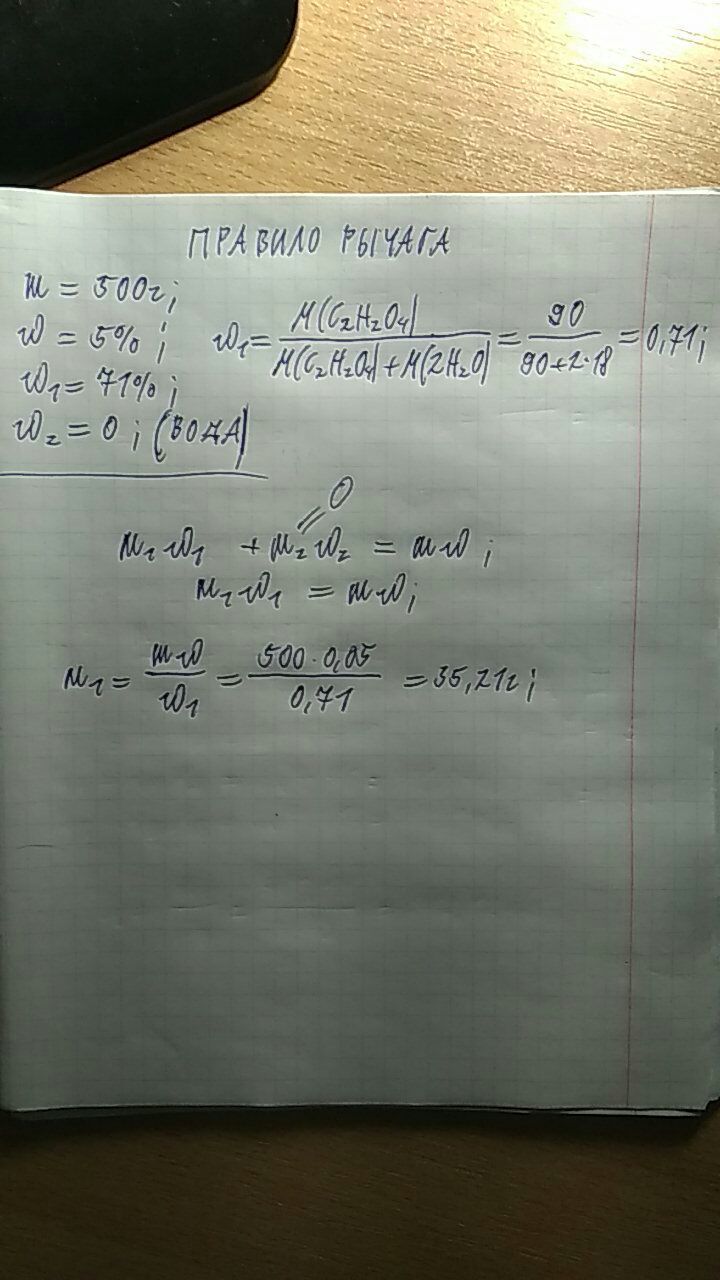 ПРАВИЛО РЫЧАГА
m = 500г;
ω = 5% ;
ω₁ = 71% ;
ω₂ = 0 ; (ВОДА)
ω₁ = M(C₂H₂O₄) / M(C₂H₂O₄) + M(2H₂O) = 90 / 90+2·18 = 0,71;
0
m₁ω₁ + m₂ω₂ = mω ;
m₁ω₁ = mω;
m₁ = mω / ω₁ = 500·0,05 / 0,71 = 35,21г;